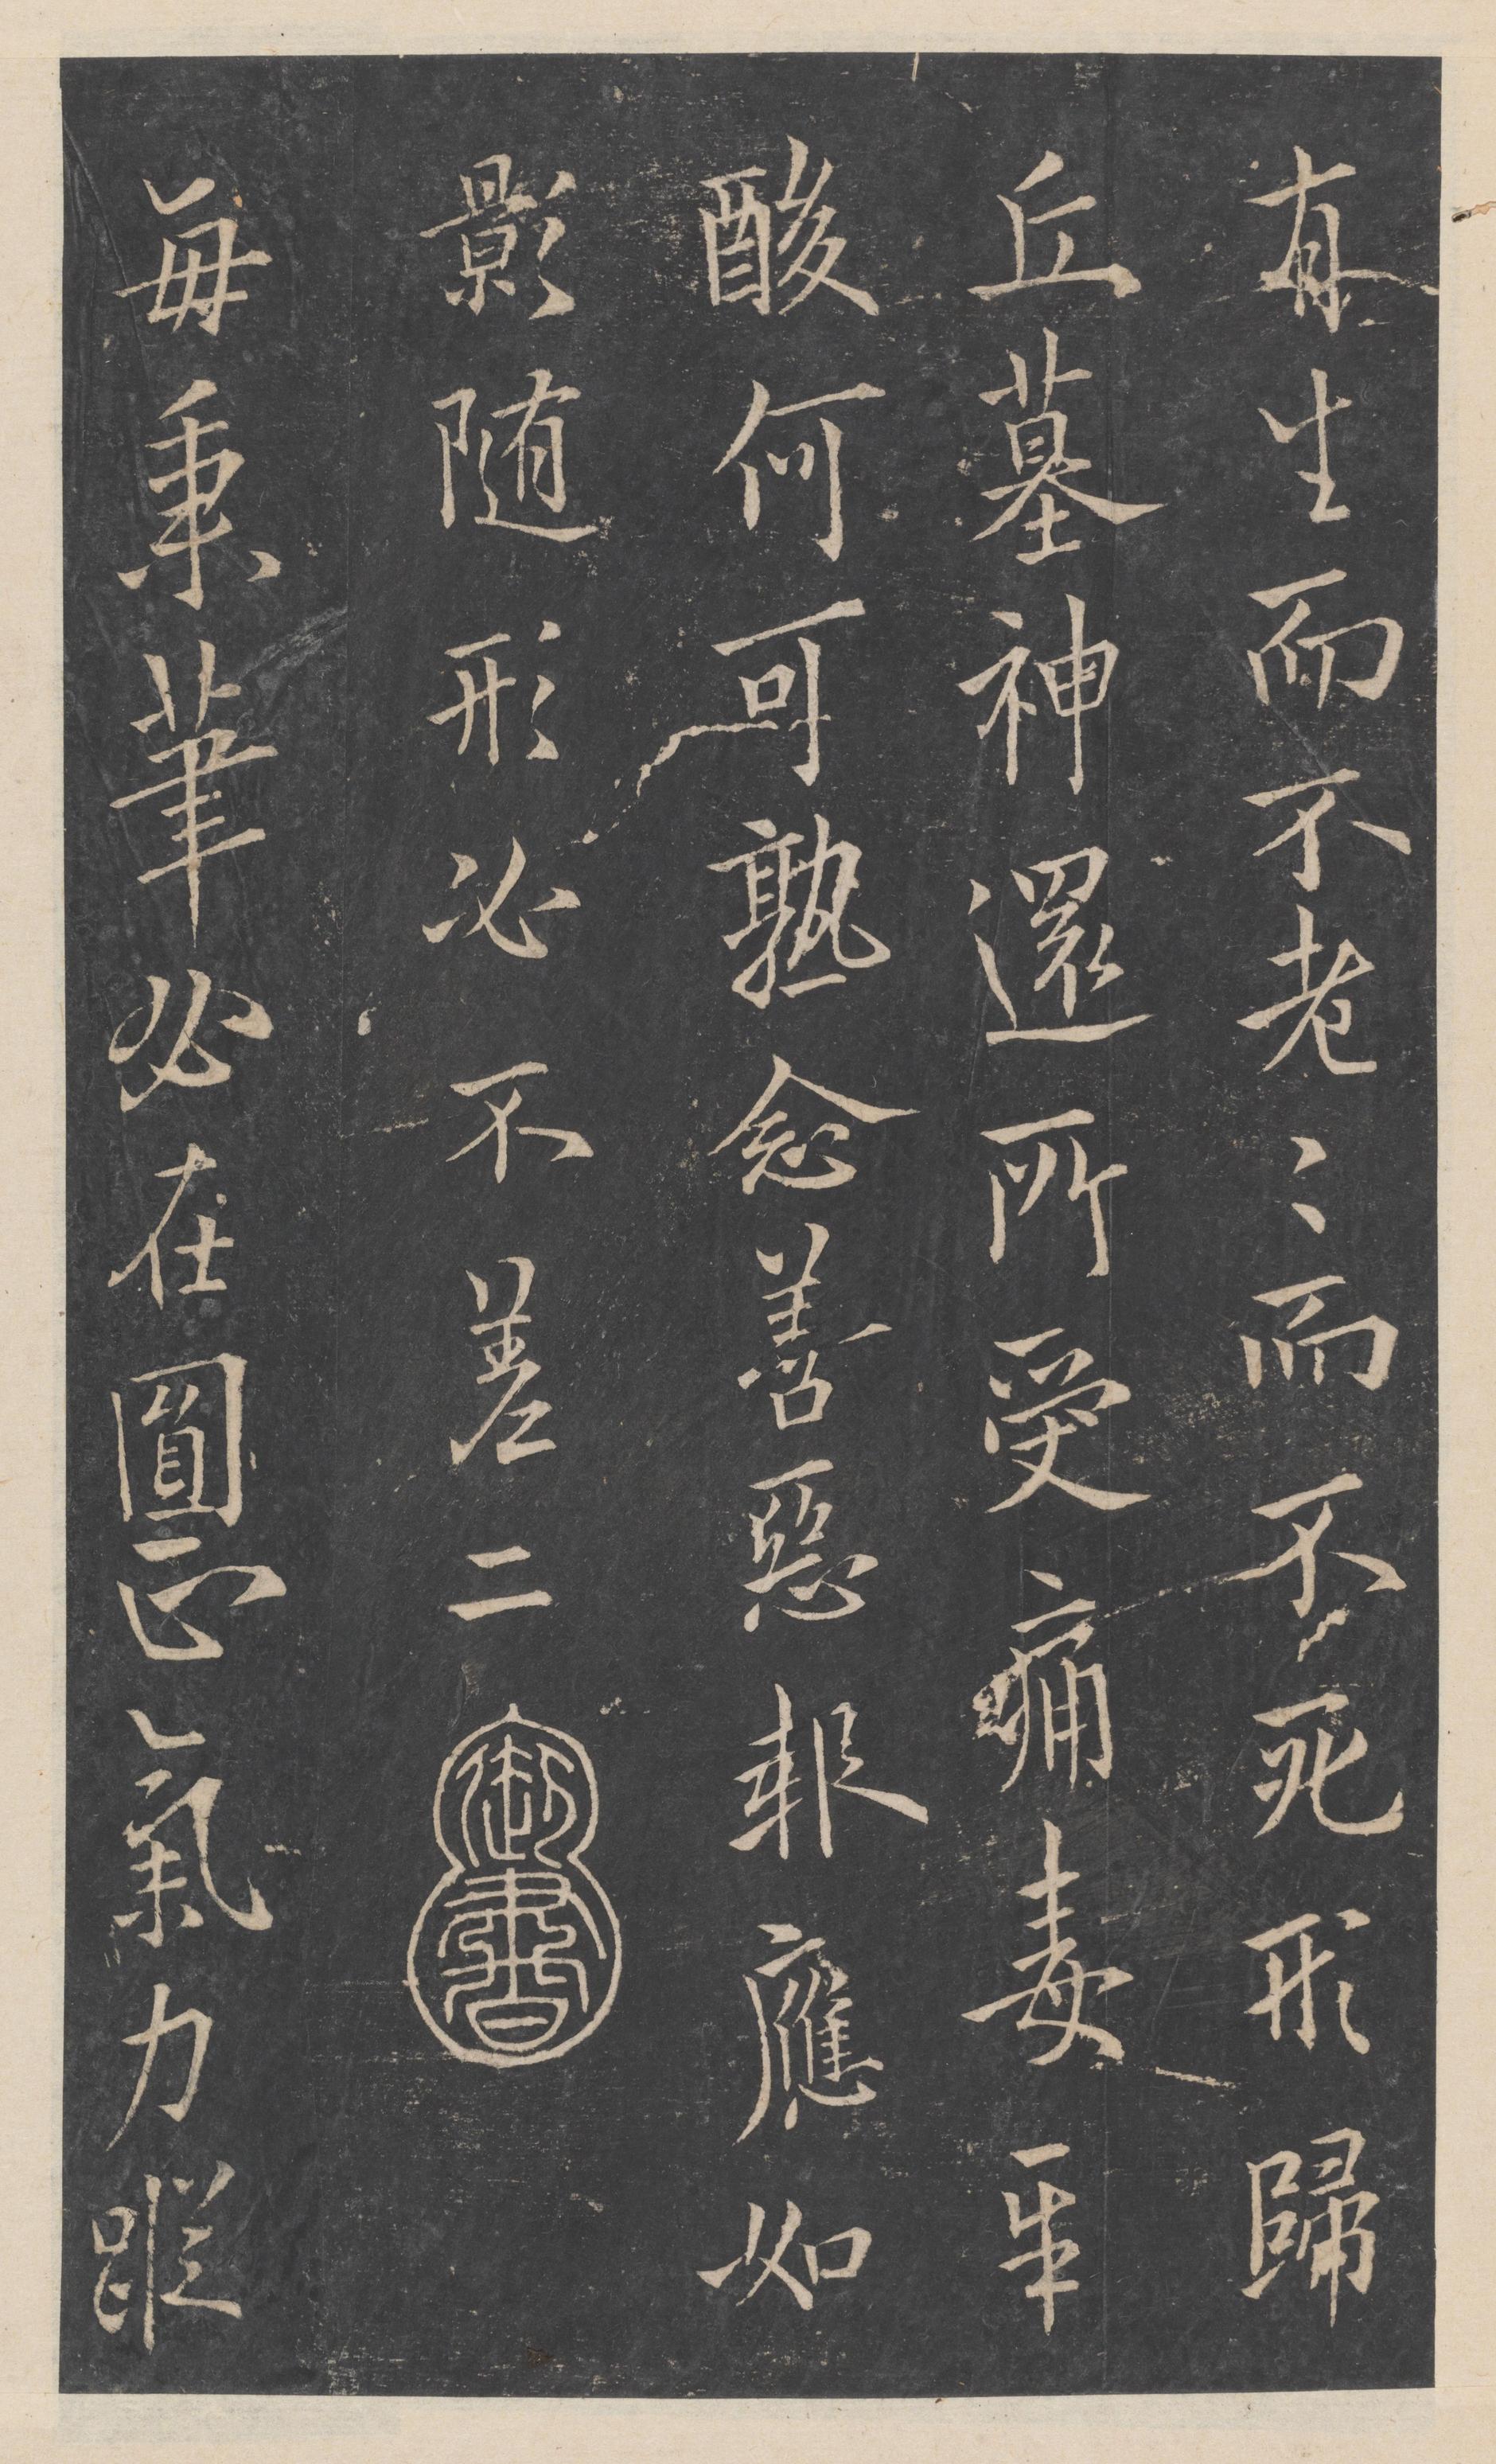 有生而不老〻而不死形歸
丘墓神還所受痛毒辛
酸何可熟念善惡報應如
影随形必不差二
御書
每秉筆必在圓正氣力蹤